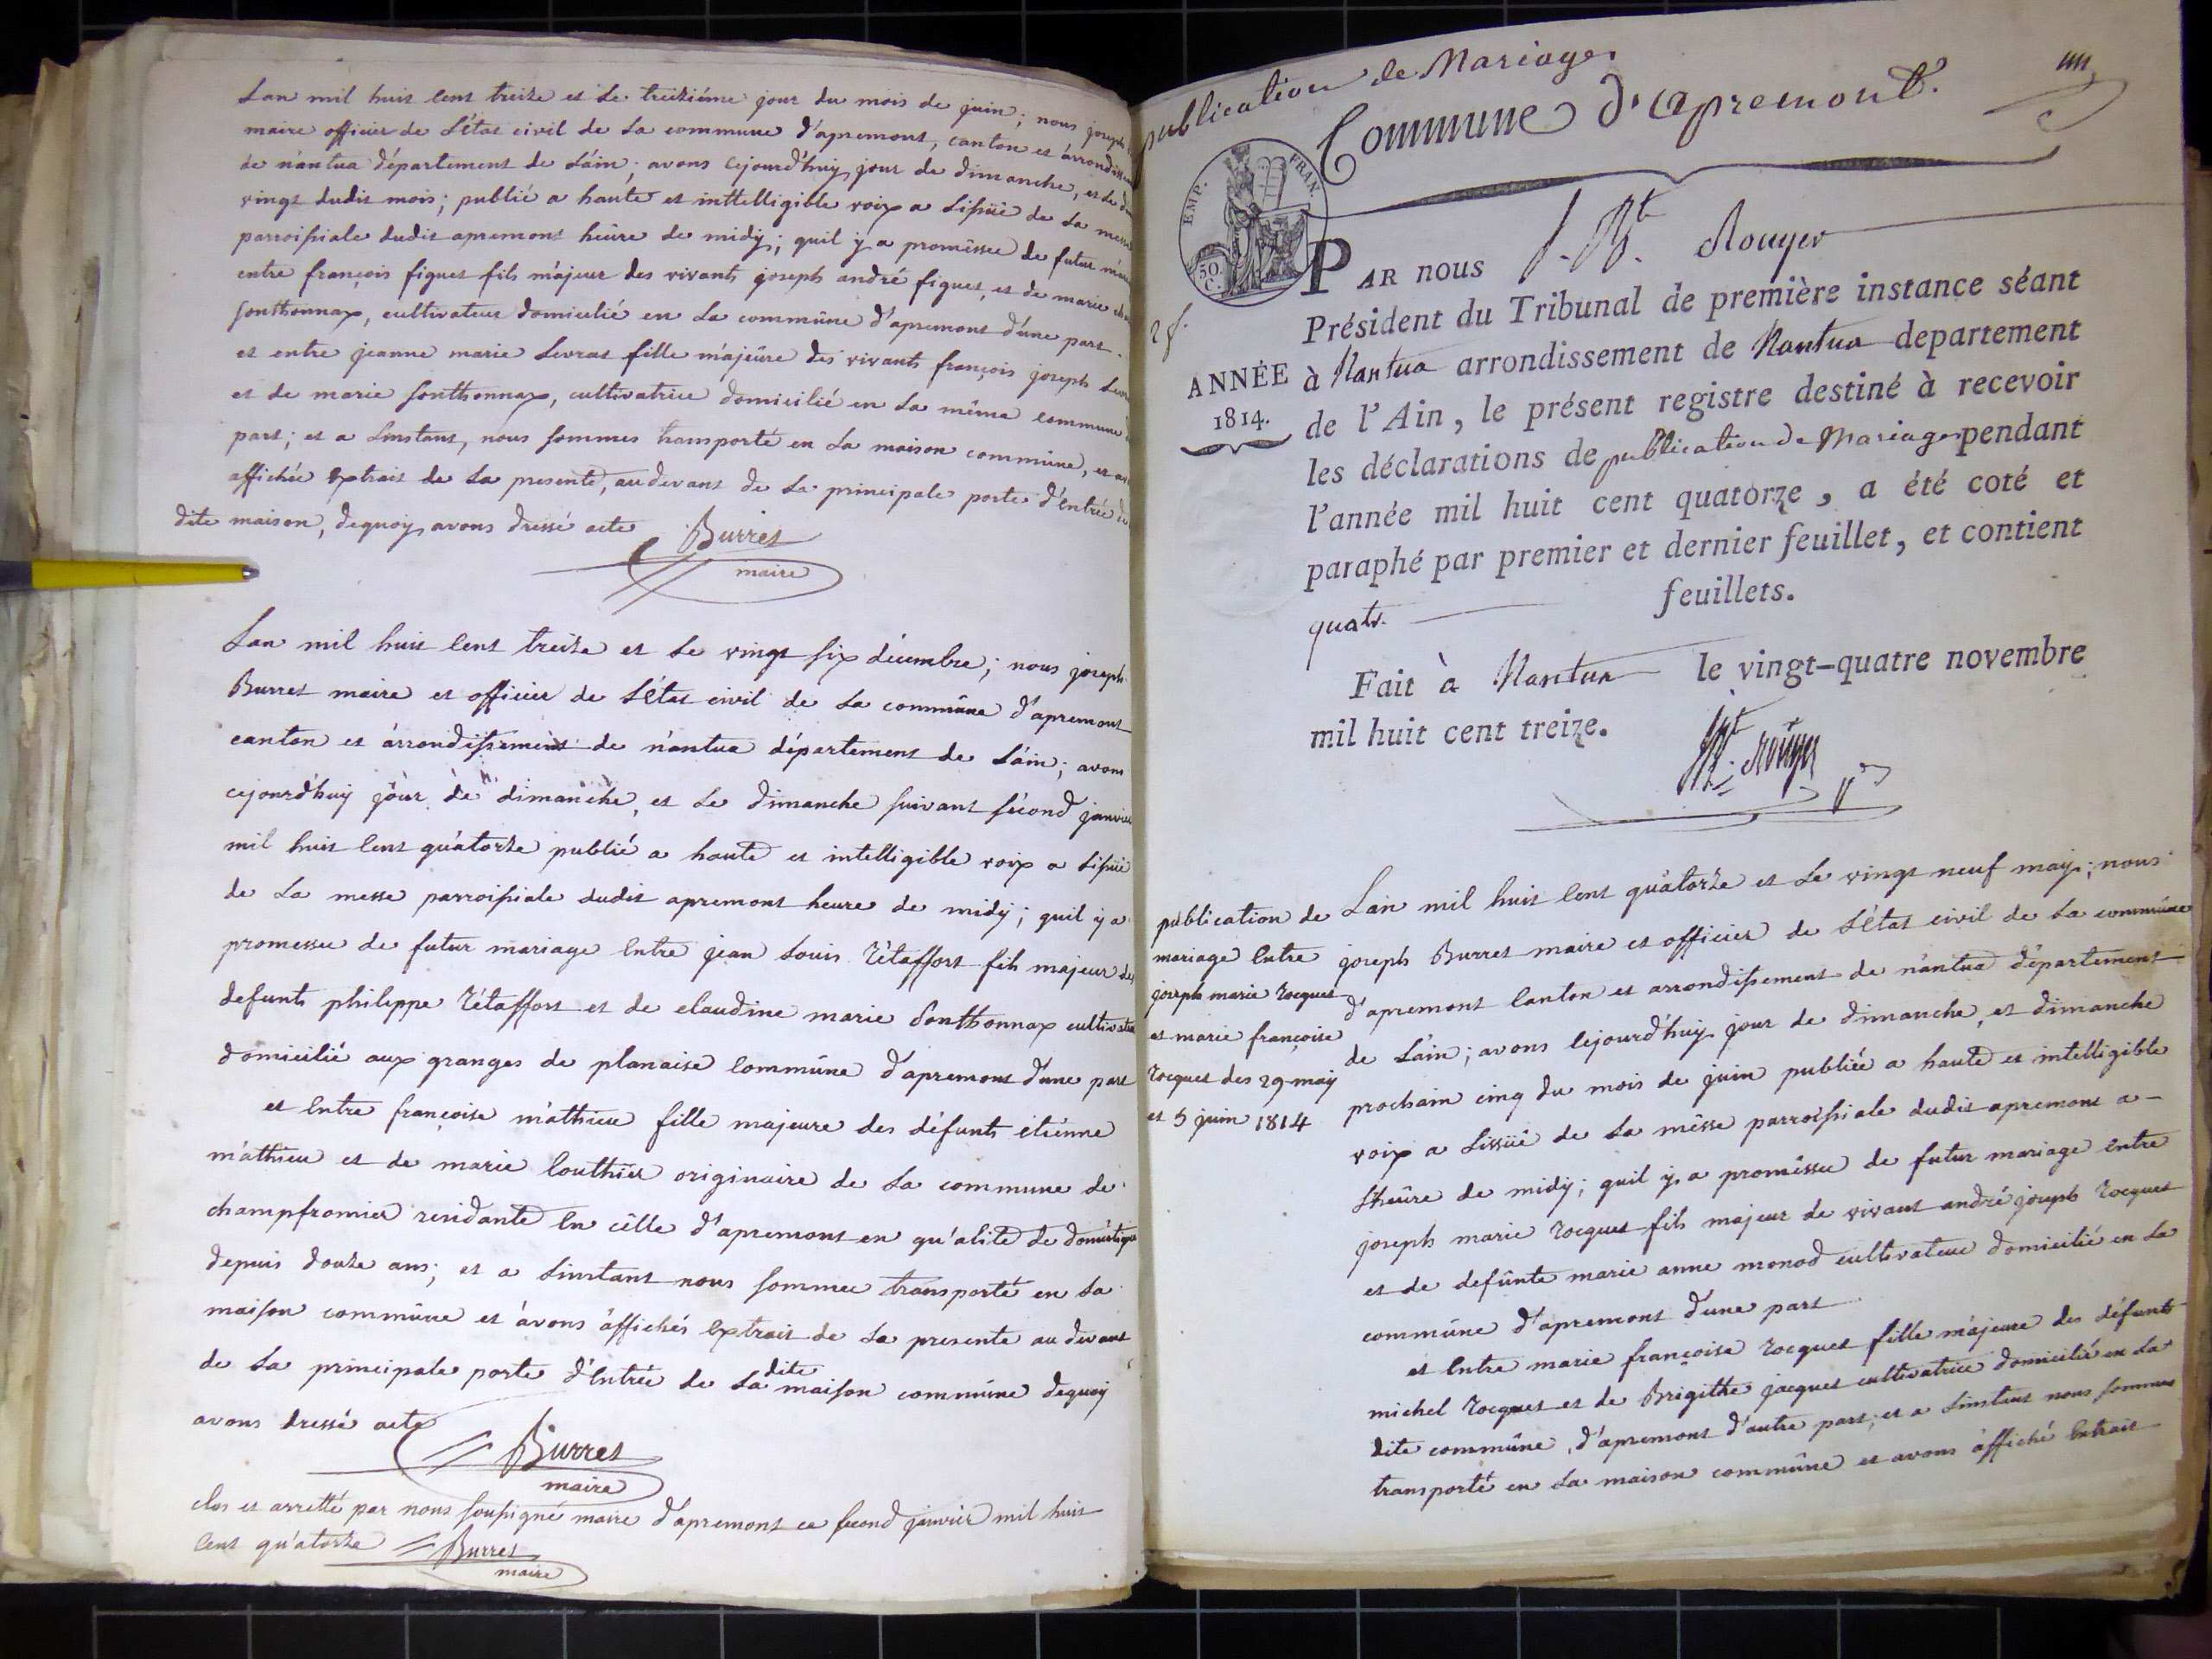 Lan mil huit Cent treize et Le treiziéme jour du mois de juin; nous joseph
maire officier de L'état civil de La commune d'apremont, canton et árrondissem
de nántua département de L'áin; avons cejourd'huy jour de dimanche, et Le
vingt dudit mois; publié a haute et inttelligible voix a Lissüe de La messe
parroissiale dudit apremont heûre de midy; quil y a promêsse de futur
entre françois figuet fils majeur des vivants joseph andré figuet, et de marie
sonthonnax, cultivateur domicilié en La commûne d'apremont d'une part.
et entre jeanne marie Levrat fille májeûre des vivants françois joseph
et de marie sonthonnax, cultivatrice domicilié en La mêma commune
part; et a Linstant, nous sommes transporté en La maison commûne, et
affichée Extrait de La presente, audevant de La principale porte d'entrée
dite maison, dequoy avons dressé acte
Burret
maire
Lan mil huit Cent treize et Le vingt six décembre; nous joseph
Burret maire et officier de L'état civil de La commûne d'apremont
canton et árrondissement de nántua département de L'áin; avons
cejourd'huy jour de dimanche, et Le dimanche suivant sécond janvier
mil huit Cent quátorze publié a haute et intelligible voix a Lissüe
de La messe parroissiale dudit apremont heure de midy; quil y a
promesse de futur mariage Entre jean Louis Tétaffort fils majeur des
defunts philippe Tétaffort et de claudine marie Sonthonnax cultivateur
domicilié aux granges de planaise Commûne d'apremont d'une part
et Entre françoise máthieu fille majeure des défunts étiénne
máthieu et de marie Couthier originaire de La commune de
champfromier residante En cêlle d'apremont en quálité de domêstique
depuis douze ans; et a Linstant nous sommes transporté en La
maison commûne et ávons áffichés Extrait de La presente au devant
de La principale porte d'Entrée de La dite maison commûne dequoy
avons dressé acte
Burret
maire
clos et arretté par nous soussigné maire d'apremont ce second janvier mil huit
Cent quátorze
Burret
maire
publication de Mariages
Commune d'apremont.
EMP. FRAN.
50. C.
2 f.
PAR nous J. Bte Rouyer
Président du Tribunal de première instance séant
à Nantua arrondissement de Nantua departement
ANNÉE
1814.
de l'Ain, le présent registre destiné à recevoir
les déclarations de publication de Mariages pendant
l'année mil huit cent quatorze, a été coté et
paraphé par premier et dernier feuillet, et contient
quatr. feuillets.
Fait à Nantua le vingt-quatre novembre
mil huit cent treize.
publication de
mariage Entre
joseph marie Rocquet
et marie françoise
Rocquet des 29 may
et 5 juin 1814
Lan mil huit Cent quátorze et Le vingt neuf may; nous
joseph Burret maire et officier de L'état civil de La commûne
d'apremont Canton et arrondissement de nántua département
de Lain; avons Cejourd'huy jour de dimanche, et dimanche
prochain cinq du mois de juin publiée a haute et intelligible
voix a Lissüe de La mêsse parroissiale dudit apremont a
Lheûre de midy; quil y a promêsse de futur mariage Entre
joseph marie Rocquet fils majeur de vivant andré joseph Rocquet
et de defûnte marie anne monod cultivateur domicilié en La
commûne d'apremont d'une part
et Entre marie françoise Rocquet fille májeure des défunts
michel Rocquet et de Brigithe jacquet cultivatrice domicilié en La
dite commûne, d'apremont d'autre part; et a Linstant nous sommes
transporté en La maison commûne et avons áffiché Extrait